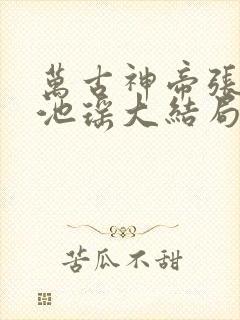 萬古神帝張
池瑤大結局
苦瓜不甜